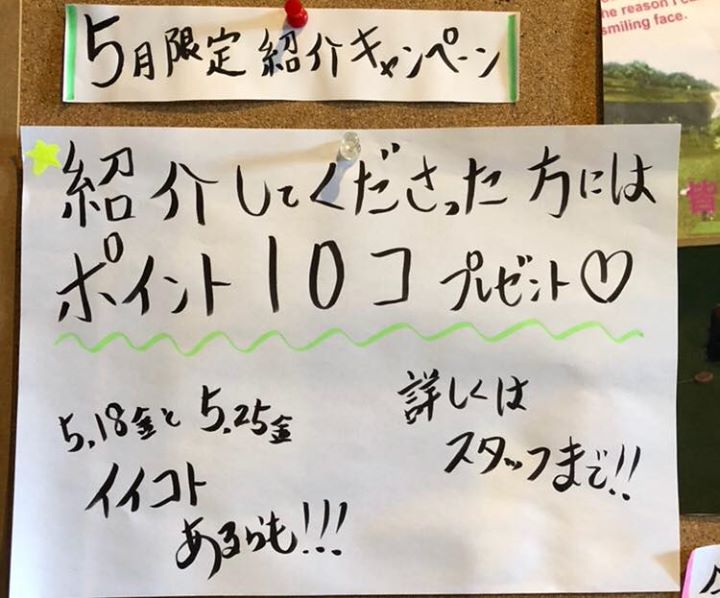 5月限定紹介キャンペーン
紹介してくださった方には
ポイント10コ プレゼント♡
5.18金と5.25金
イイコト
あるらも!!!
詳しくは
スタッフまで!!
the reason I ca
smiling face.
皆